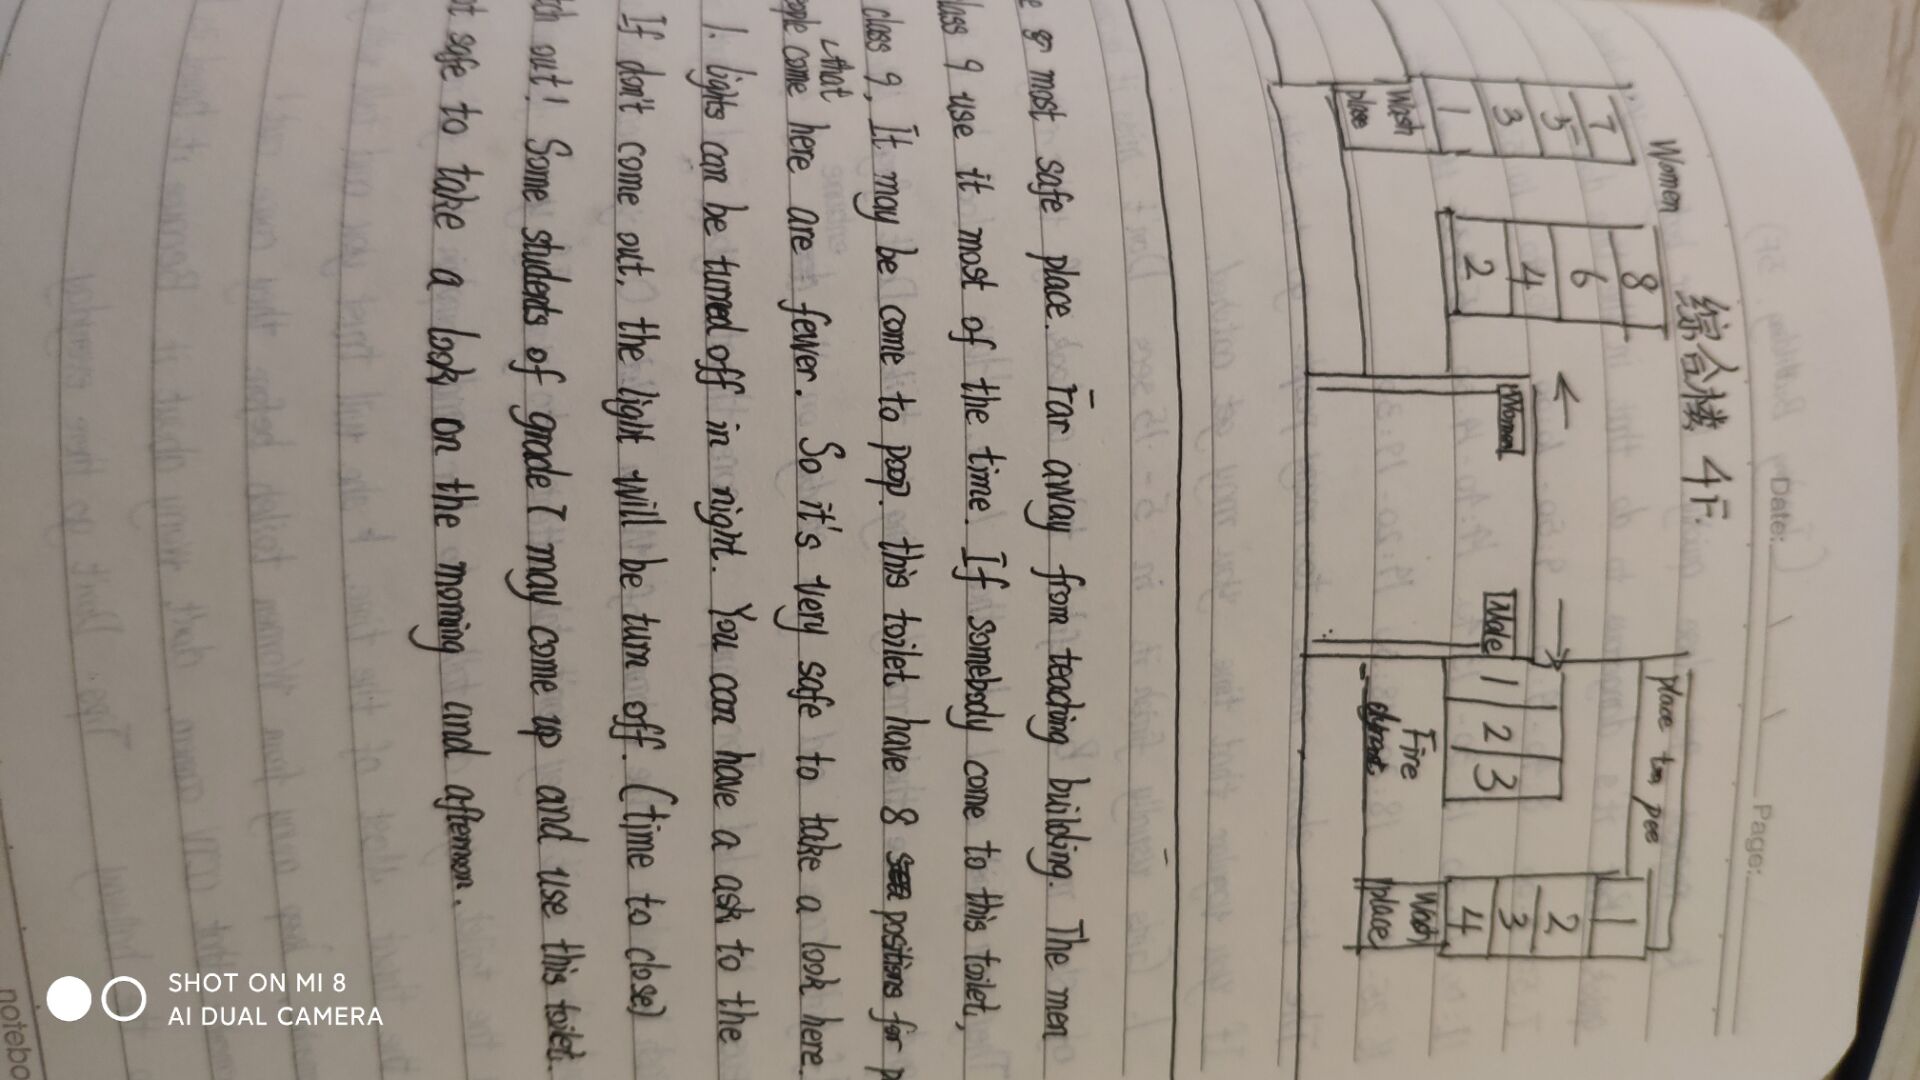 Date: Page:
综合楼 4F.
Women
place to pee
7 8
5 6
3 4
1 2
Wash
place
Women
Male
1 2 3
Fire
1
2
3
4
Wash
place
most safe place. Far away from teaching building. The men
9 use it most of the time. If somebody come to this toilet,
class 9, It may be come to poop. this toilet have 8 positions for
that
come here are fewer. So it's very safe to take a look here.
1. lights can be turned off in night. You can have a ask to the
If don't come out, the light will be turn off. (time to close)
out! Some students of grade 7 may come up and use this toilet.
safe to take a look on the morning and afternoon.
SHOT ON MI 8
AI DUAL CAMERA